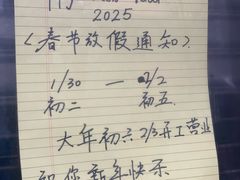 2025
<春节放假通知>
1/30 — 2/2
初二 初五
大年初六 2/3开工营业
祝你新年快乐